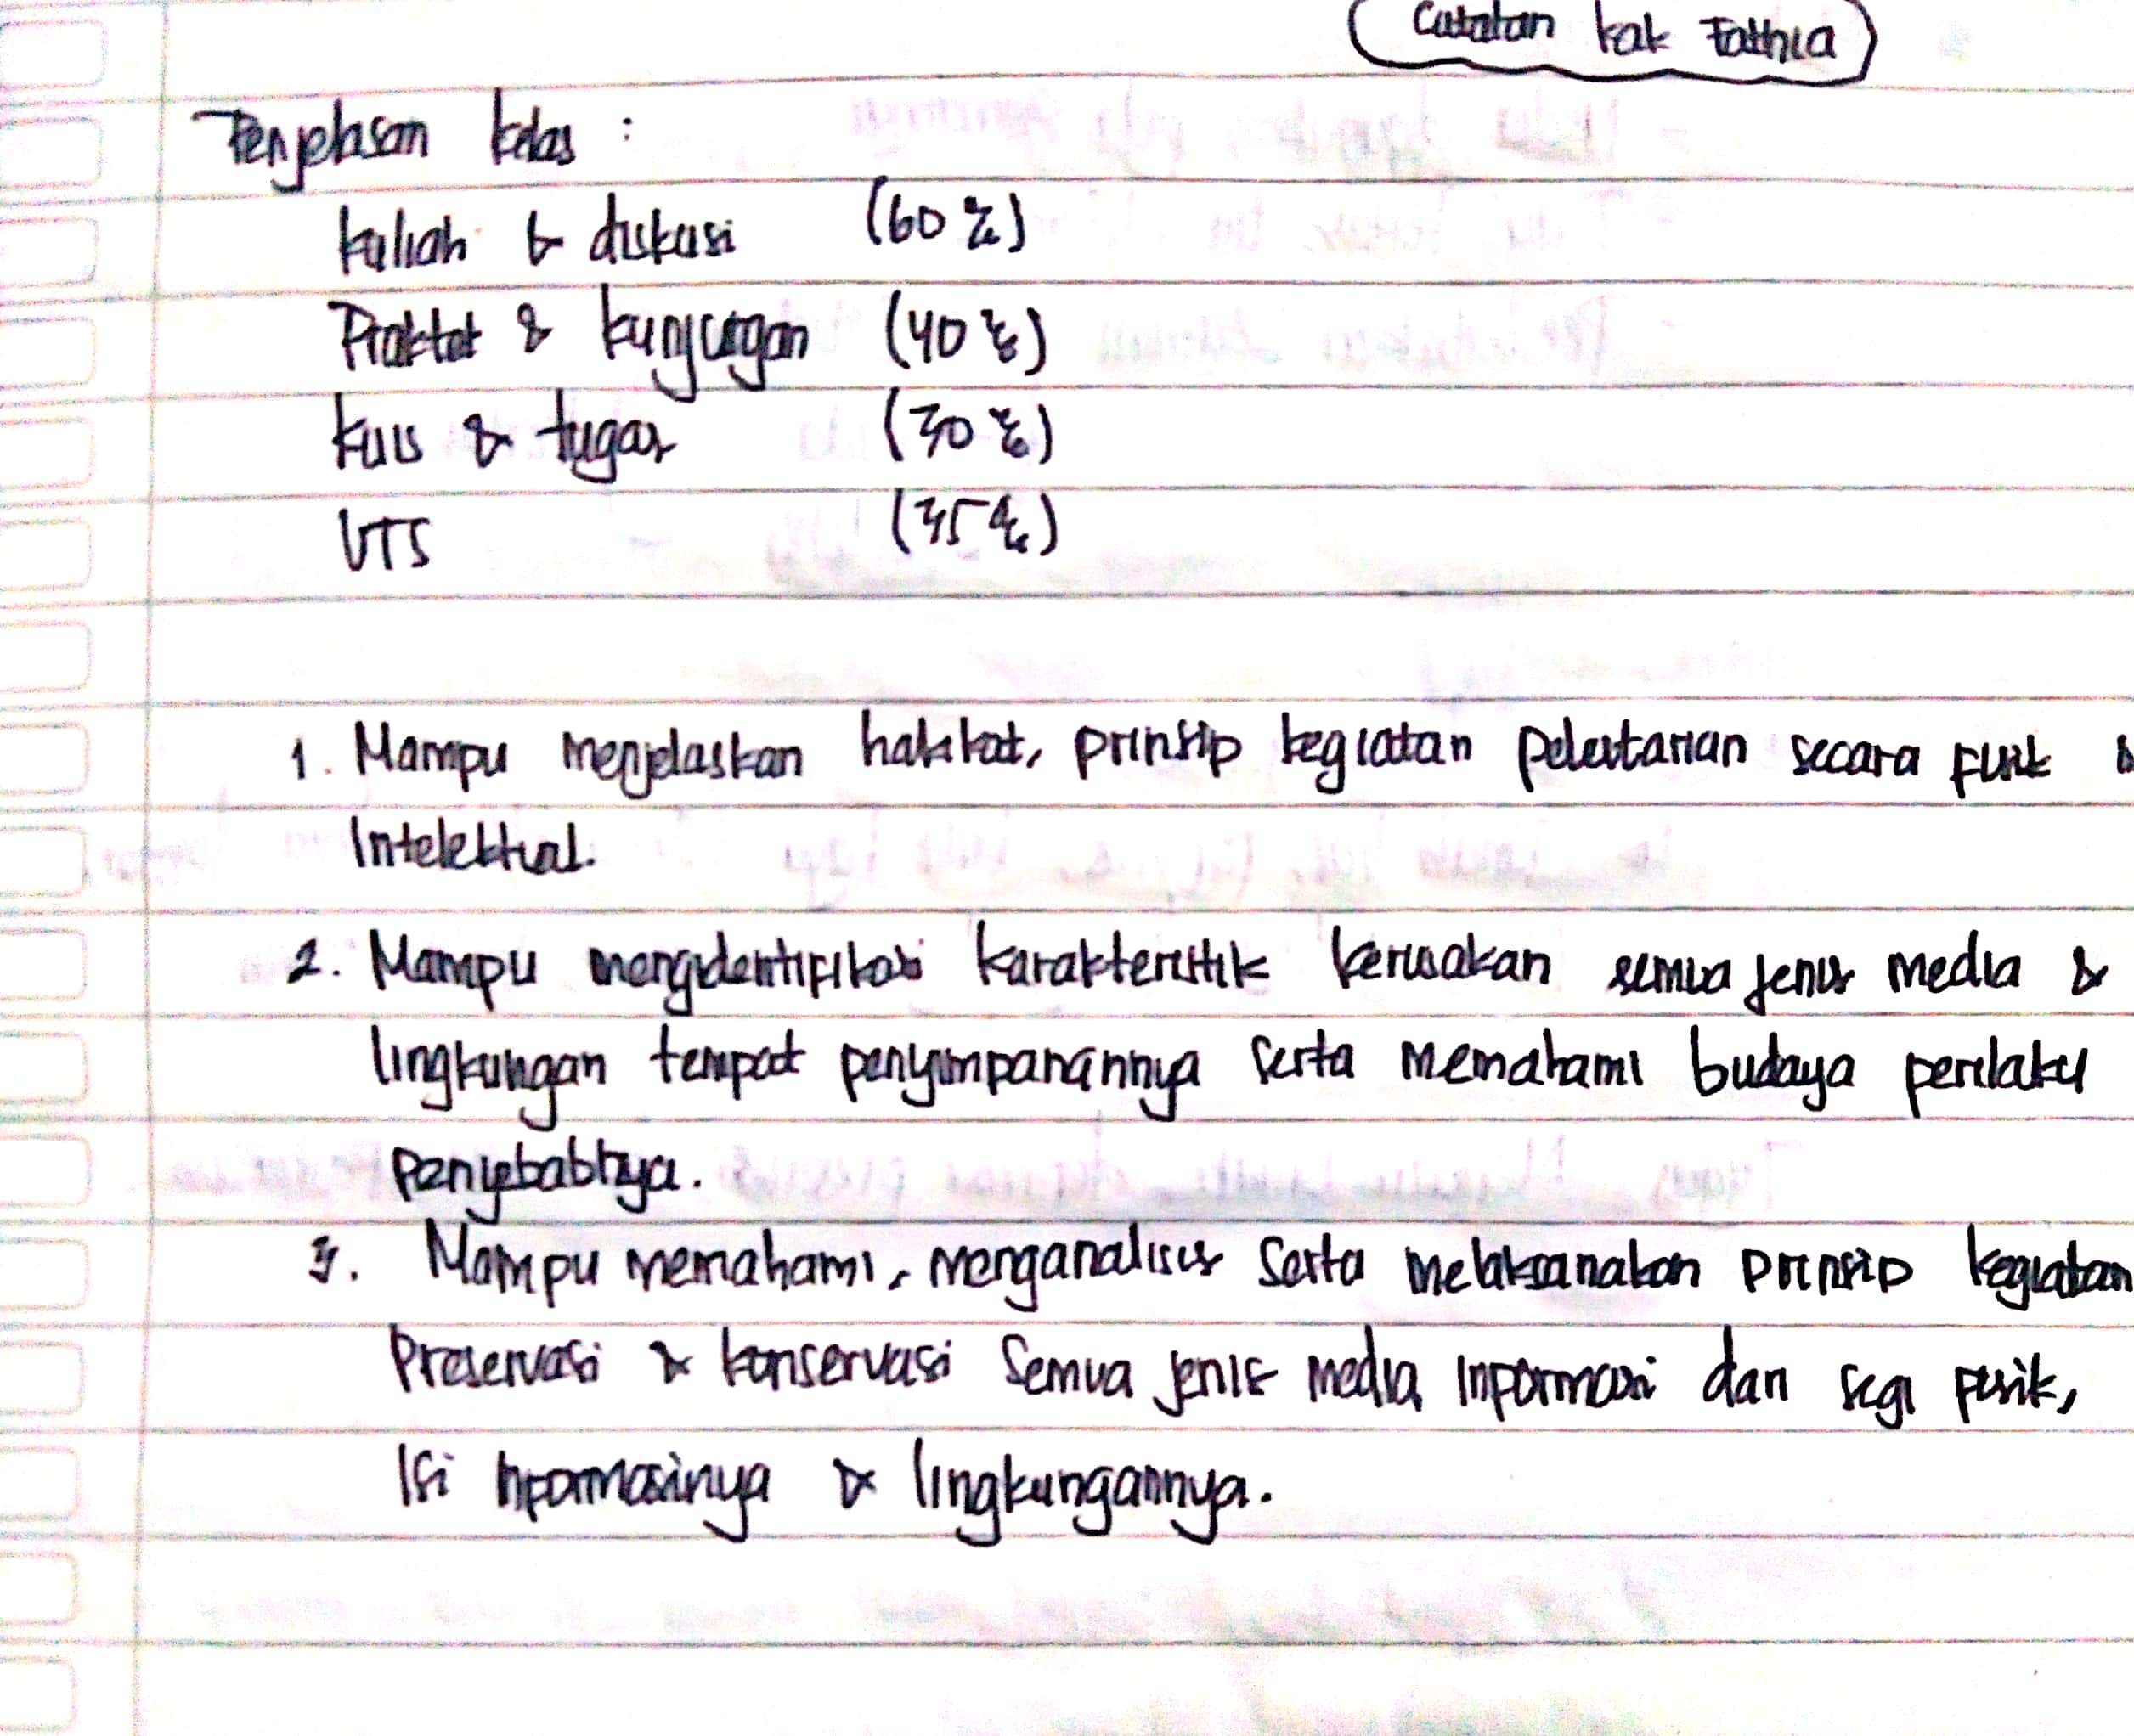 Catatan kak Fathia
Penjelasan kelas :
kuliah & diskusi (60%)
Praktek & kunjungan (40%)
kuis & tugas (30%)
UTS (35%)
1. Mampu menjelaskan hakikat, prinsip kegiatan pelestarian secara fisik &
Intelektual.
2. Mampu mengidentifikasi karakteristik kerusakan semua jenis media &
lingkungan tempat penyimpanannya serta memahami budaya perilaku
penyebabnya.
3. Mampu memahami, menganalisis serta melaksanakan prinsip kegiatan
Preservasi & konservasi semua jenis media informasi dari segi fisik,
Isi informasinya & lingkungannya.